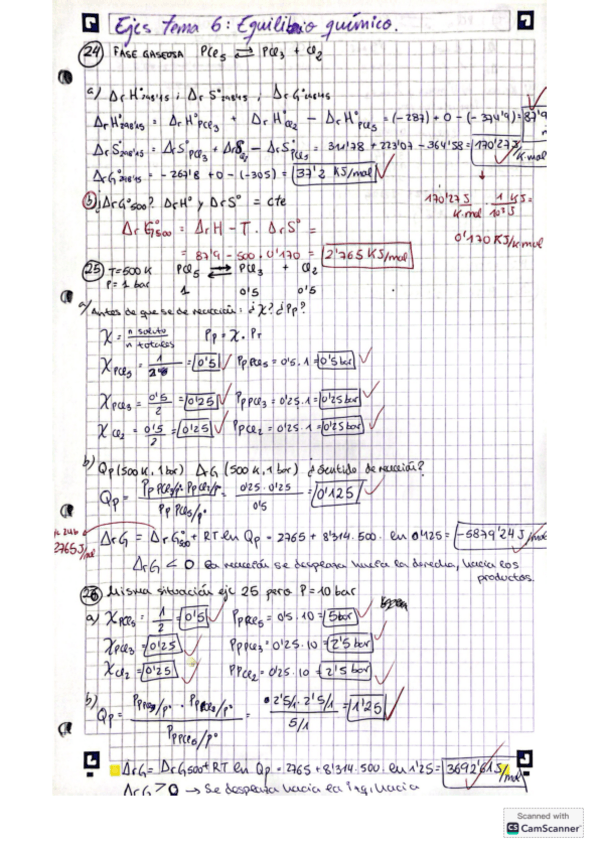 Ejcs Tema 6: Equilibrio químico.
24 FASE GASEOSA PCl5 ⇌ PCl3 + Cl2
a) ΔrH°298'15 ; ΔrS°298'15 ; ΔrG°298'15
ΔrH°298'15 = ΔrH°PCl3 + ΔrH°Cl2 - ΔrH°PCl5 = (-287) + 0 - (-374'9) = 87'9
ΔrS°298'15 = ΔrS°PCl3 + ΔrS°Cl2 - ΔrS°PCl5 = 311'78 + 223'07 - 364'58 = 170'27 J/K·mol
ΔrG°298'15 = -267'8 + 0 - (-305) = 37'2 KJ/mol
b) ¿ΔrG°500? ΔrH° y ΔrS° = cte
170'27 J/K·mol · 1 KJ/10³ J =
0'170 KJ/K·mol
ΔrG°500 = ΔrH - T · ΔrS° =
= 87'9 - 500 · 0'170 = 2'765 KJ/mol
25 T=500 K PCl5 ⇌ PCl3 + Cl2
P = 1 bar 1 0'5 0'5
a) Antes de que se de reacción: ¿X? ¿Pp?
X = n soluto/n totales Pp = X · PT
XPCl5 = 1/2 = 0'5 PpPCl5 = 0'5 · 1 = 0'5 bar
XPCl3 = 0'5/2 = 0'25 PpPCl3 = 0'25 · 1 = 0'25 bar
XCl2 = 0'5/2 = 0'25 PpPCl2 = 0'25 · 1 = 0'25 bar
b) Qp (500 K, 1 bar) ΔrG (500 K, 1 bar) ¿Sentido de reacción?
Qp = PpPCl3/p° · PpCl2/p° / PpPCl5/p° = 0'25 · 0'25 / 0'5 = 0'125
2765 J/mol
ΔrG = ΔrG°500 + RT ln Qp = 2765 + 8'314 · 500 · ln 0'125 = -5879'24 J/mol
ΔrG < 0 la reacción se desplaza hacia la derecha, hacia los
productos.
26 Misma situación ejc 25 pero P = 10 bar
a) XPCl5 = 1/2 = 0'5 PpPCl5 = 0'5 · 10 = 5 bar
XPCl3 = 0'25 PpPCl3 = 0'25 · 10 = 2'5 bar
XCl2 = 0'25 PpCl2 = 0'25 · 10 = 2'5 bar
b) Qp = PpPCl3/p° · PpCl2/p° / PpPCl5/p° = 2'5/1 · 2'5/1 / 5/1 = 1'25
ΔrG = ΔrG500 + RT ln Qp = 2765 + 8'314 · 500 · ln 1'25 = 3692'61 J/mol
ΔrG > 0 → Se desplaza hacia la izq, hacia
Scanned with
CS CamScanner